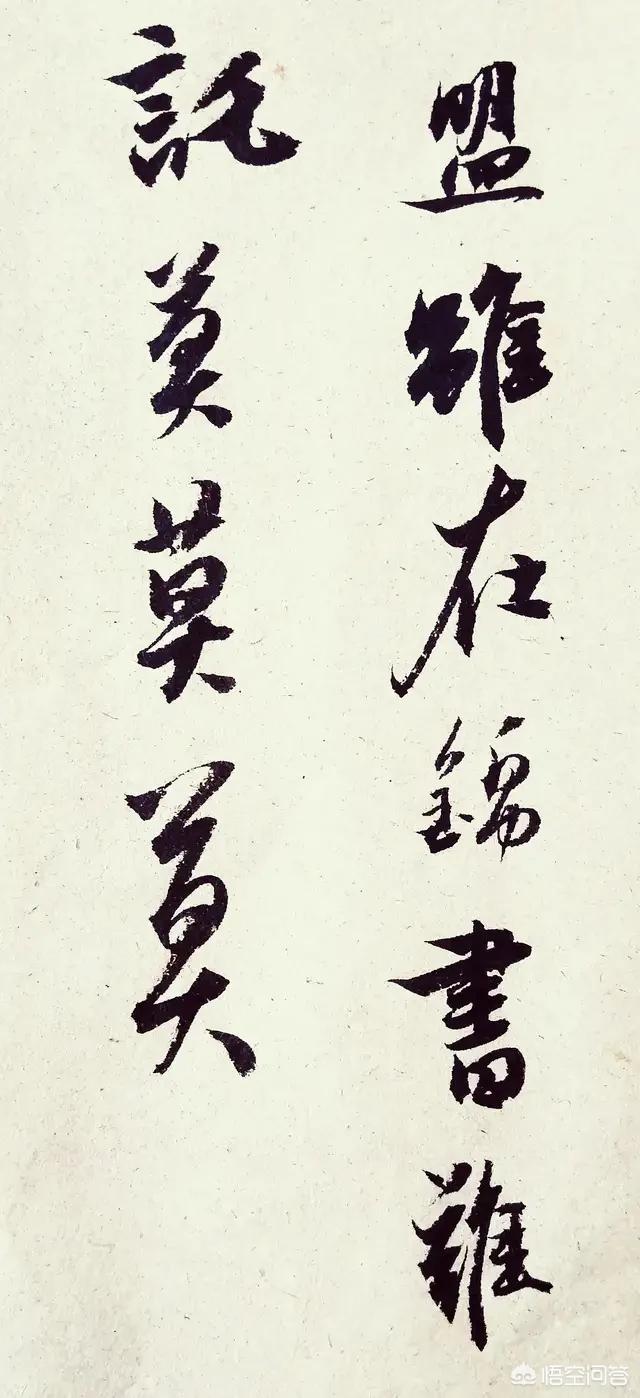 盟雖在錦書難
託莫莫莫
悟空问答